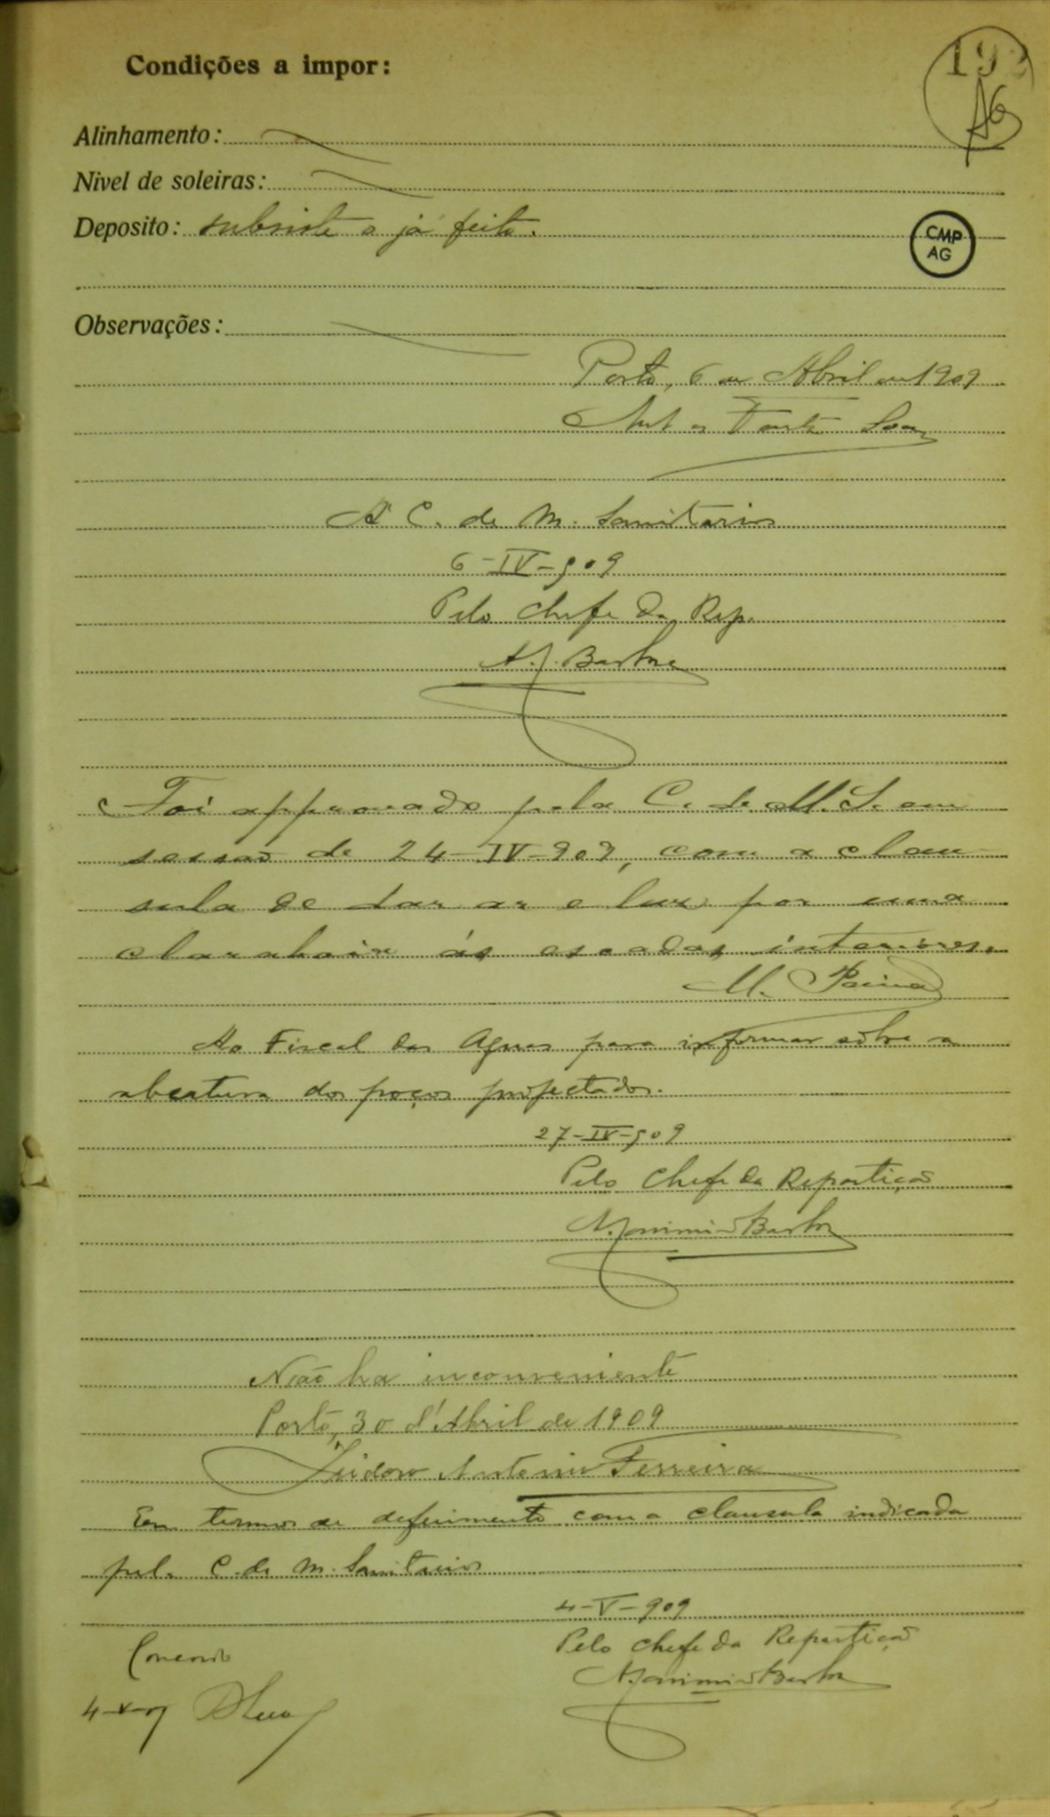 Condições a impor:
192
AG
Alinhamento:
Nivel de soleiras:
Deposito: subsiste o já feito.
CMP
AG
Observações:
Porto, 6 de Abril de 1909
A C. de M. Sanitarios
6-IV-909
Pelo Chefe da Rep.
Foi approvado pela C. de M. S. em
sessão de 24-IV-909, com a clau-
sula de dar ar e luz por uma
claraboia ás escadas interiores.
M. Paiva
Ao Fiscal das Aguas para informar sôbre a
abertura dos poços projectados.
27-IV-909
Pelo Chefe da Repartição
Não ha inconveniente
Porto, 30 d'Abril de 1909
Isidoro Antonio Ferreira
Em termos de deferimento com a clausula indicada
pela C. de M. Sanitarios
4-V-909
Pelo Chefe da Repartição
Concordo